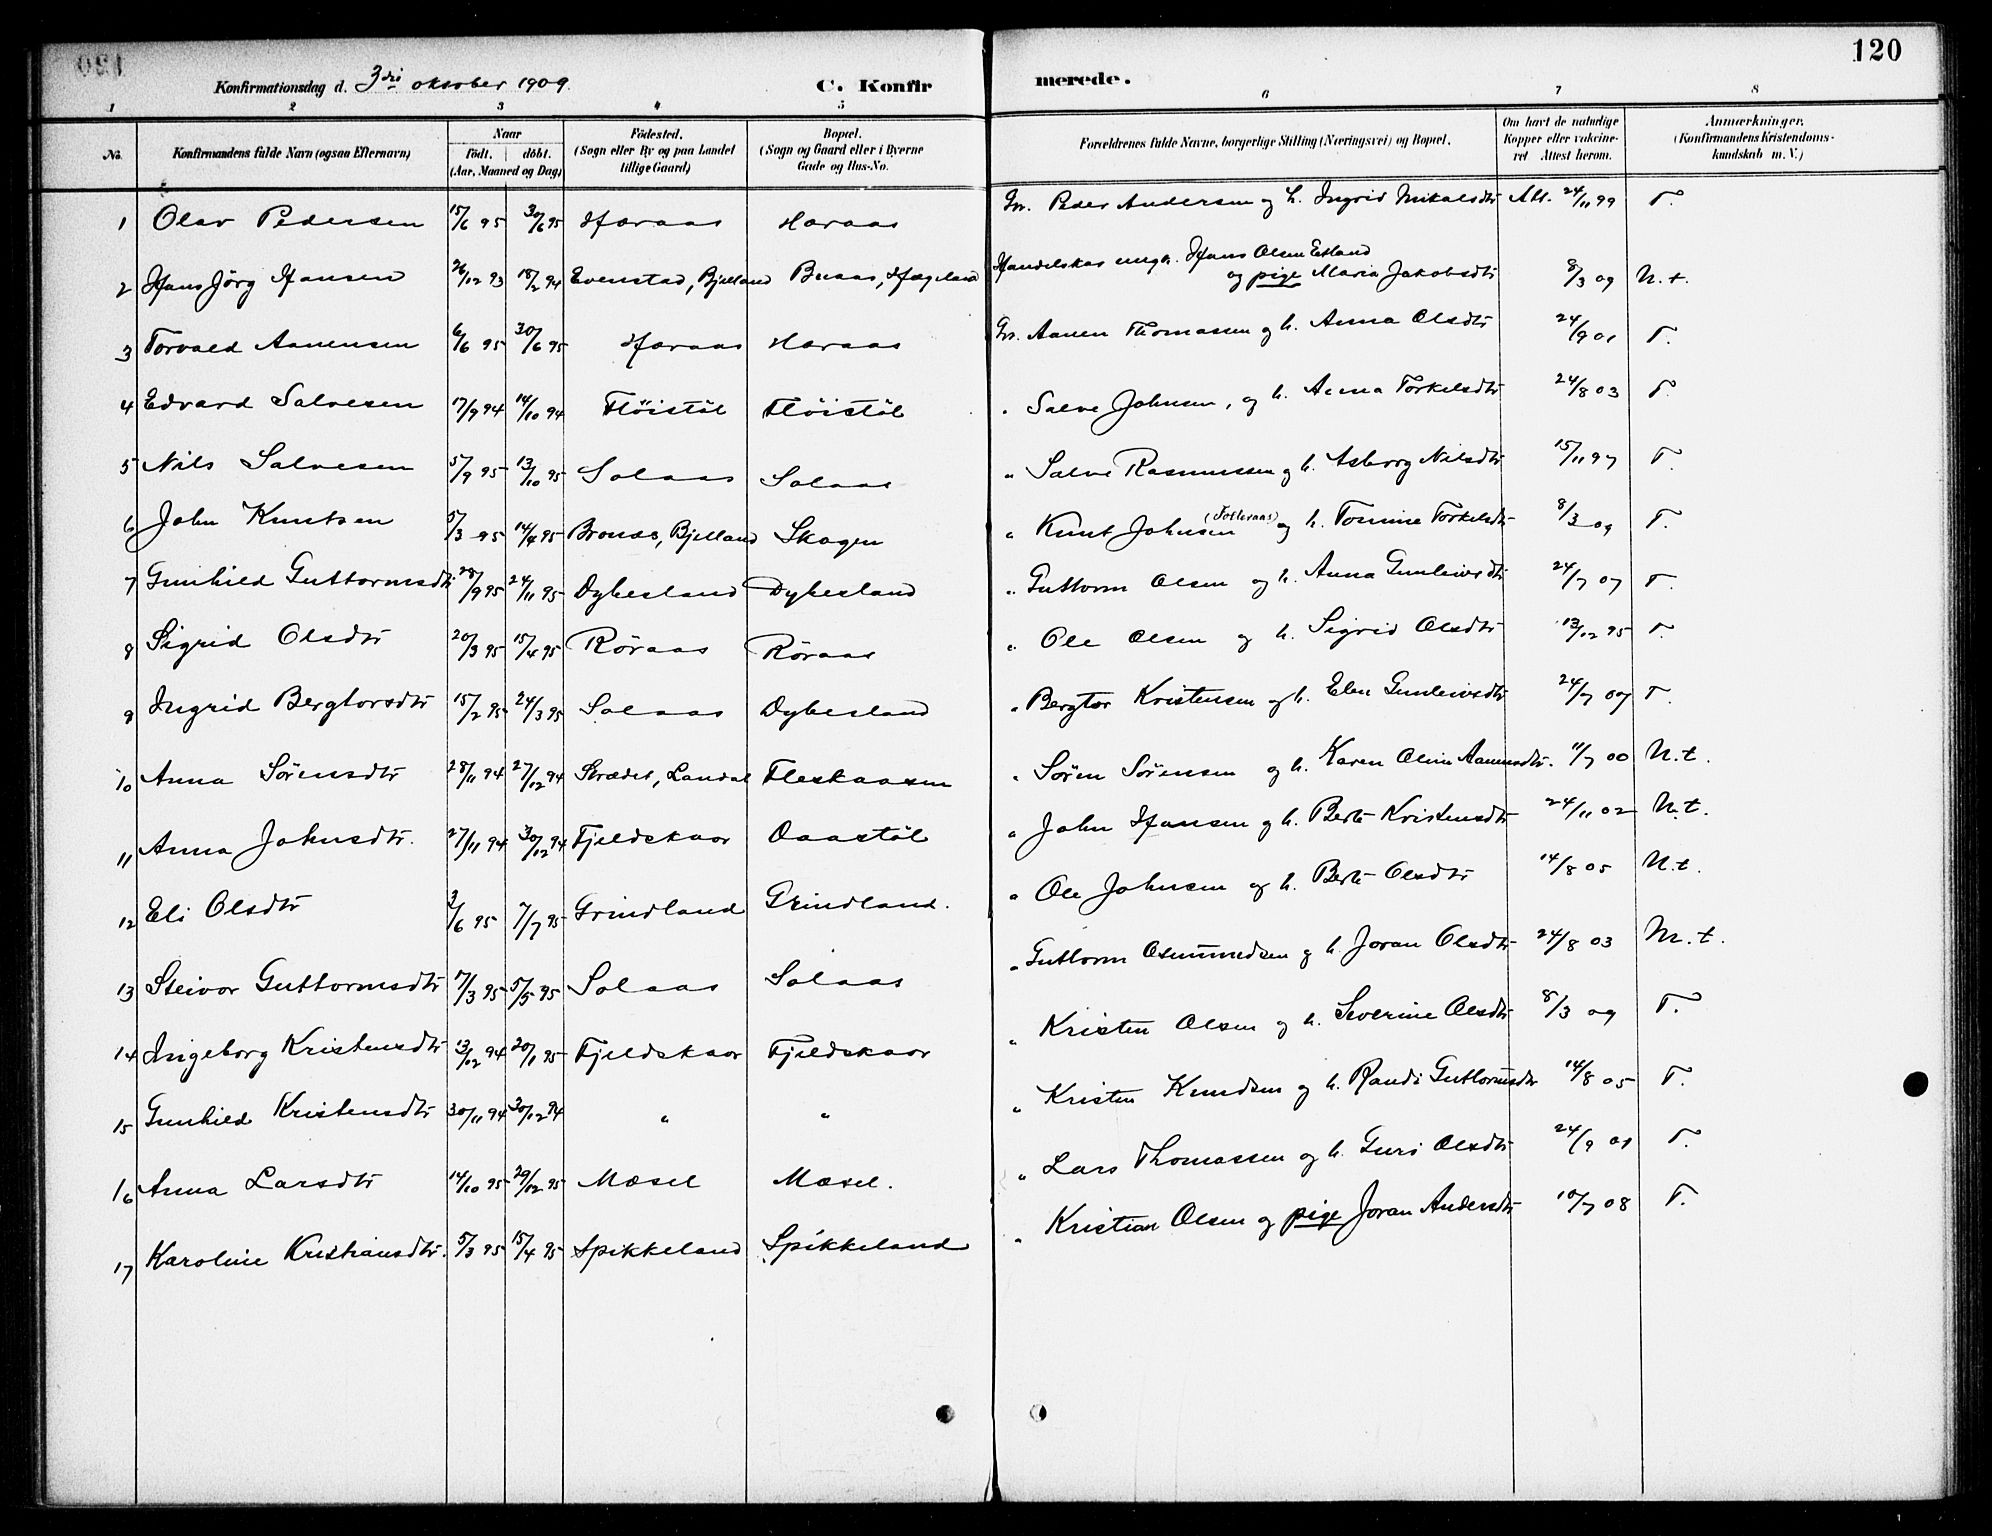 120
Konfirmationsdag d. 3die oktober 1909.
C. Konfirmerede.
1 2 3 4 5 6 7 8
No. Konfirmandens fulde Navn (ogsaa Efternavn) Naar Födt. döbt. (Aar, Maaned og Dag) Födested. (Sogn eller By og paa Landet tillige Gaard) Bopæl. (Sogn og Gaard eller i Byerne Gade og Hus-No. Forældrenes fulde Navne, borgerlige Stilling (Næringsvei) og Bopæl. Om havt de naturlige Kopper eller vakcineret Attest herom. Anmærkninger. (Konfirmandens Kristendomskundskab m. V.)
1 Olav Pedersen 15/6 95 30/6 95 Haraas Haraas Gr. Peder Andersen og h. Ingrid Mikalsdtr Att. 24/11 99 T.
2 Hans Jörg Hansen 26/12 93 18/2 94 Evenstad, Bjelland Buaas, Hægeland Handelskar ungk. Hans Olsen Estland og pige Maria Jakobsdtr 8/3 09 N.t.
3 Torvald Aanensen 6/6 95 30/6 95 Haraas Haraas Gr. Aanen Thomassen og h. Anna Olsdtr 24/9 01 T.
4 Edvard Salvesen 17/9 94 14/10 94 Flöistöl Flöistöl " Salve Johnsen, og h. Anna Torkelsdtr 24/8 03 T.
5 Nils Salvesen 5/9 95 13/10 95 Solaas Solaas " Salve Rasmussen og h. Asborg Nilsdtr 15/11 97 T.
6 John Knutsen 5/3 95 14/4 95 Bronas, Bjelland Skogen " Knut Johnsen og h. Tomine Torkelsdtr 8/3 09 T.
7 Gunhild Guttormsdtr 28/9 95 24/11 95 Dybesland Dybesland " Guttorm Olsen og h. Anna Gunleivsdtr 24/7 07 T.
8 Sigrid Olsdtr 20/3 95 15/4 95 Röraas Röraas " Ole Olsen og h. Sigrid Olsdtr 13/12 95 T.
9 Ingrid Bergtorsdtr 15/2 95 24/3 95 Solaas Dybesland " Bergtor Kristensen og h. Elen Gunleivsdtr 24/7 07 T.
10 Anna Sörensdtr 28/11 94 27/12 94 Strædet, Landal Fleskaasen " Sören Sörensen og h. Karen Oline Aanensdtr. 11/7 00 N.t.
11 Anna Johnsdtr. 27/11 94 30/12 94 Fjeldskaar Oaastöl " John Hansen og h. Berte Kristensdtr 24/11 02 N.t.
12 Eli Olsdtr 3/6 95 7/7 95 Grindland Grindland. " Ole Johnsen og h. Berte Olsdtr 14/8 05 N.t.
13 Steivor Guttormsdtr 7/3 95 5/5 95 Solaas Solaas " Guttorm Osmundsen og h. Joran Olsdtr 24/8 03 M.t.
14 Ingeborg Kristensdtr 13/12 94 20/1 95 Fjeldskaar Fjeldskaar " Kristen Olsen og h. Severine Olsdtr 8/3 09 T.
15 Gunhild Kristensdtr 30/11 94 30/12 94 " " " Kristen Knudsen og h. Randi Guttormsdtr 14/8 05 T.
16 Anna Larsdtr 14/10 95 29/12 95 Mæsel Mæsel. " Lars Thomassen og h. Guro Olsdtr 24/9 01 T.
17 Karoline Kristiansdtr. 5/3 95 15/4 95 Spikkeland Spikkeland " Kristian Olsen og pige Joran Andersdtr 10/7 08 T.